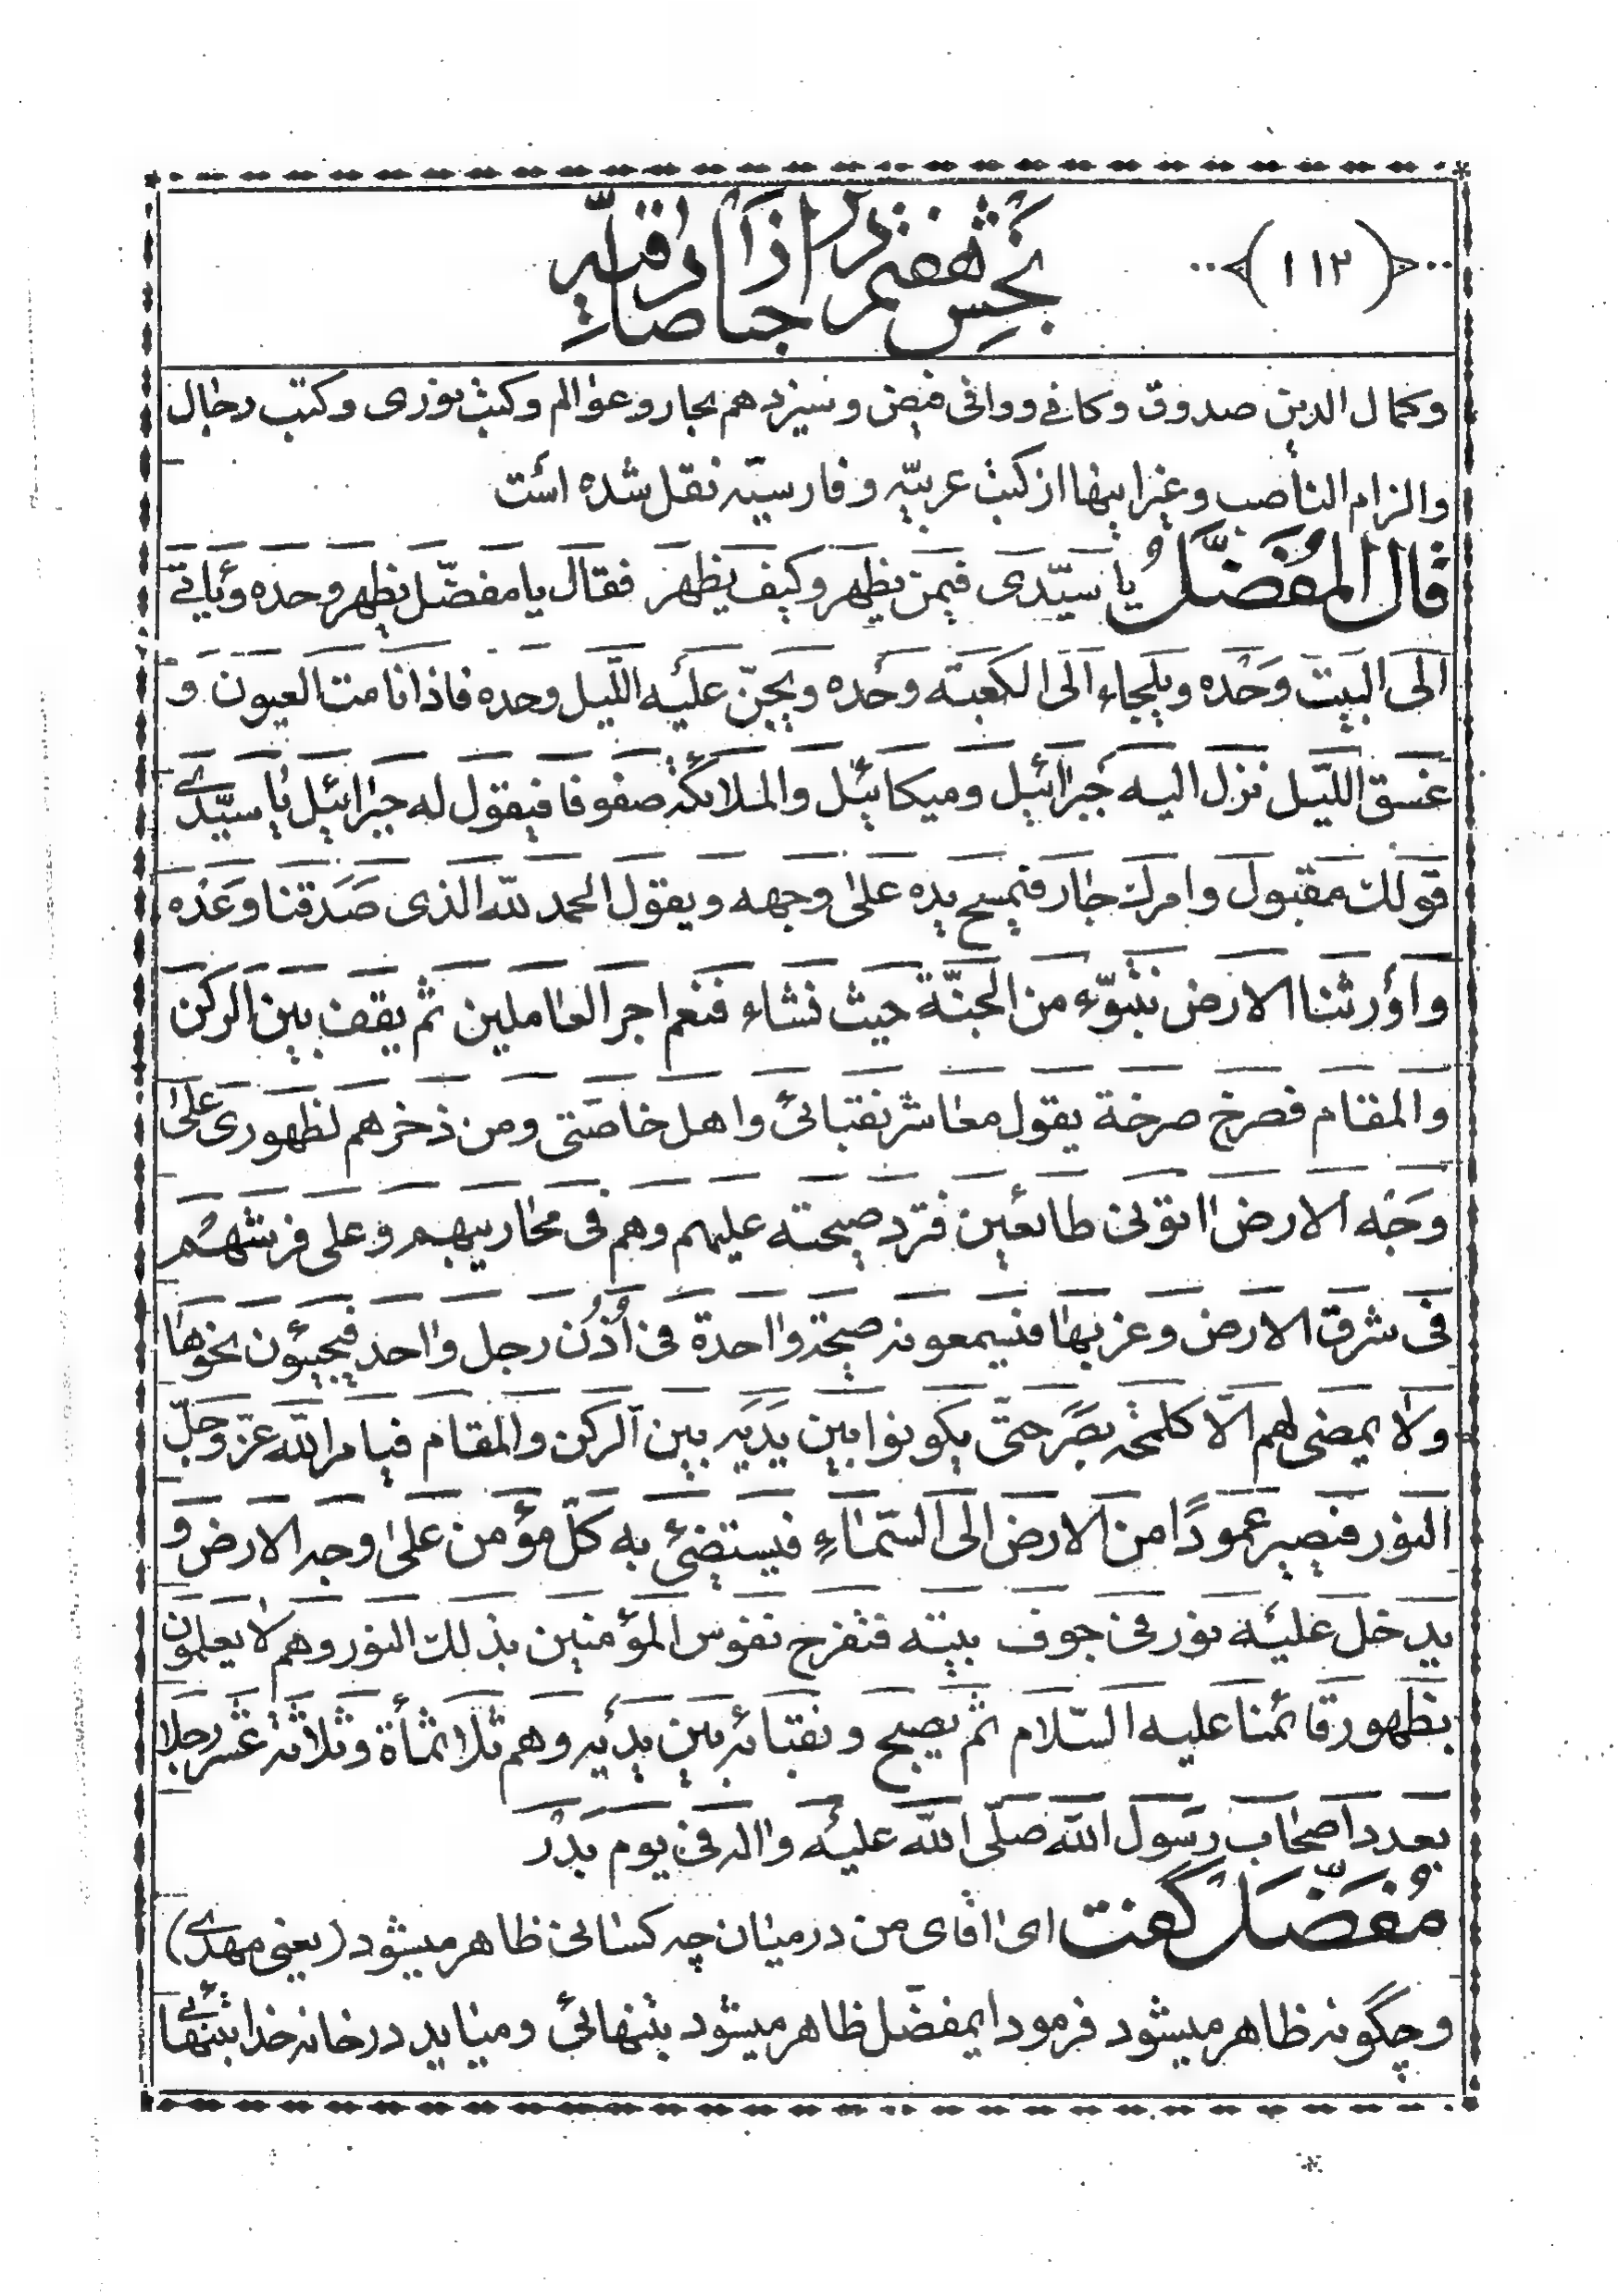 (۱۱۲)
بخش هفتم در اخبار صادقیه
و کمال الدین صدوق و کافی و وافی فیض و سیزدهم بحار و عوالم و کتب نوری و کتب رجال
و الزام الناصب و غیر اینها از کتب عربیّه و فارسیّه نقل شده است
قال المُفَضَّلُ یا سیّدی فبمن یظهر و کیف یظهر فقال یا مفضّل یظهر وحده و یأتی
الی البیت وحده و یلجاء الی الکعبته وحده و یجنّ علیه اللّیل وحده فاذا نامت العیون و
غسق اللّیل نزل الیه جبرائیل و میکائیل و الملائکه صفوفا فیقول له جبرائیل یا سیّدی
قولک مقبول و امرک جار فیمسح یده علی وجهه و یقول الحمد لله الذی صَدَقنا وَعده
و اَورثنا الارض نتبوّء من الجنّة حیث نشاء فنعم اجر العاملین ثم یقف بین الرکن
و المقام فصرخ صرخة یقول معاشر نقبائی و اهل خاصّتی و من ذخرهم لظهوری علی
وجه الارض ائتونی طائعین فترد صیحته علیهم و هم فی محاریبهم و علی فرشهم
فی شرق الارض و غربها فیسمعونه صیحة واحدة فی اُذُن رجل واحد فیجیئون نحوها
و لا یمضی لهم الّا کلمحه بصر حتّی یکونوا بین یدیه بین الرکن و المقام فیامر الله عزّ و جلّ
النور فیصیر عمودًا من الارض الی السّماءِ فیستضئ به کلّ مؤمن علی وجه الارض و
یدخل علیه نور فی جوف بیته فتفرح نفوس المؤمنین بذلک النور و هم لا یعلمون
بظهور قائمنا علیه السّلام ثم یصبح و نقبائه بین یدیه و هم ثلاثمأة و ثلاثه عشر رجلا
بعدد اصحاب رسول الله صلّی الله علیه و اله فی یوم بدر
مُفَضَّل گفت ای اقای من در میان چه کسانی ظاهر میشود (یعنی مهدی)
و چگونه ظاهر میشود فرمود ایمفضّل ظاهر میشود بتنهائی و میاید در خانه خدا بتنهائی